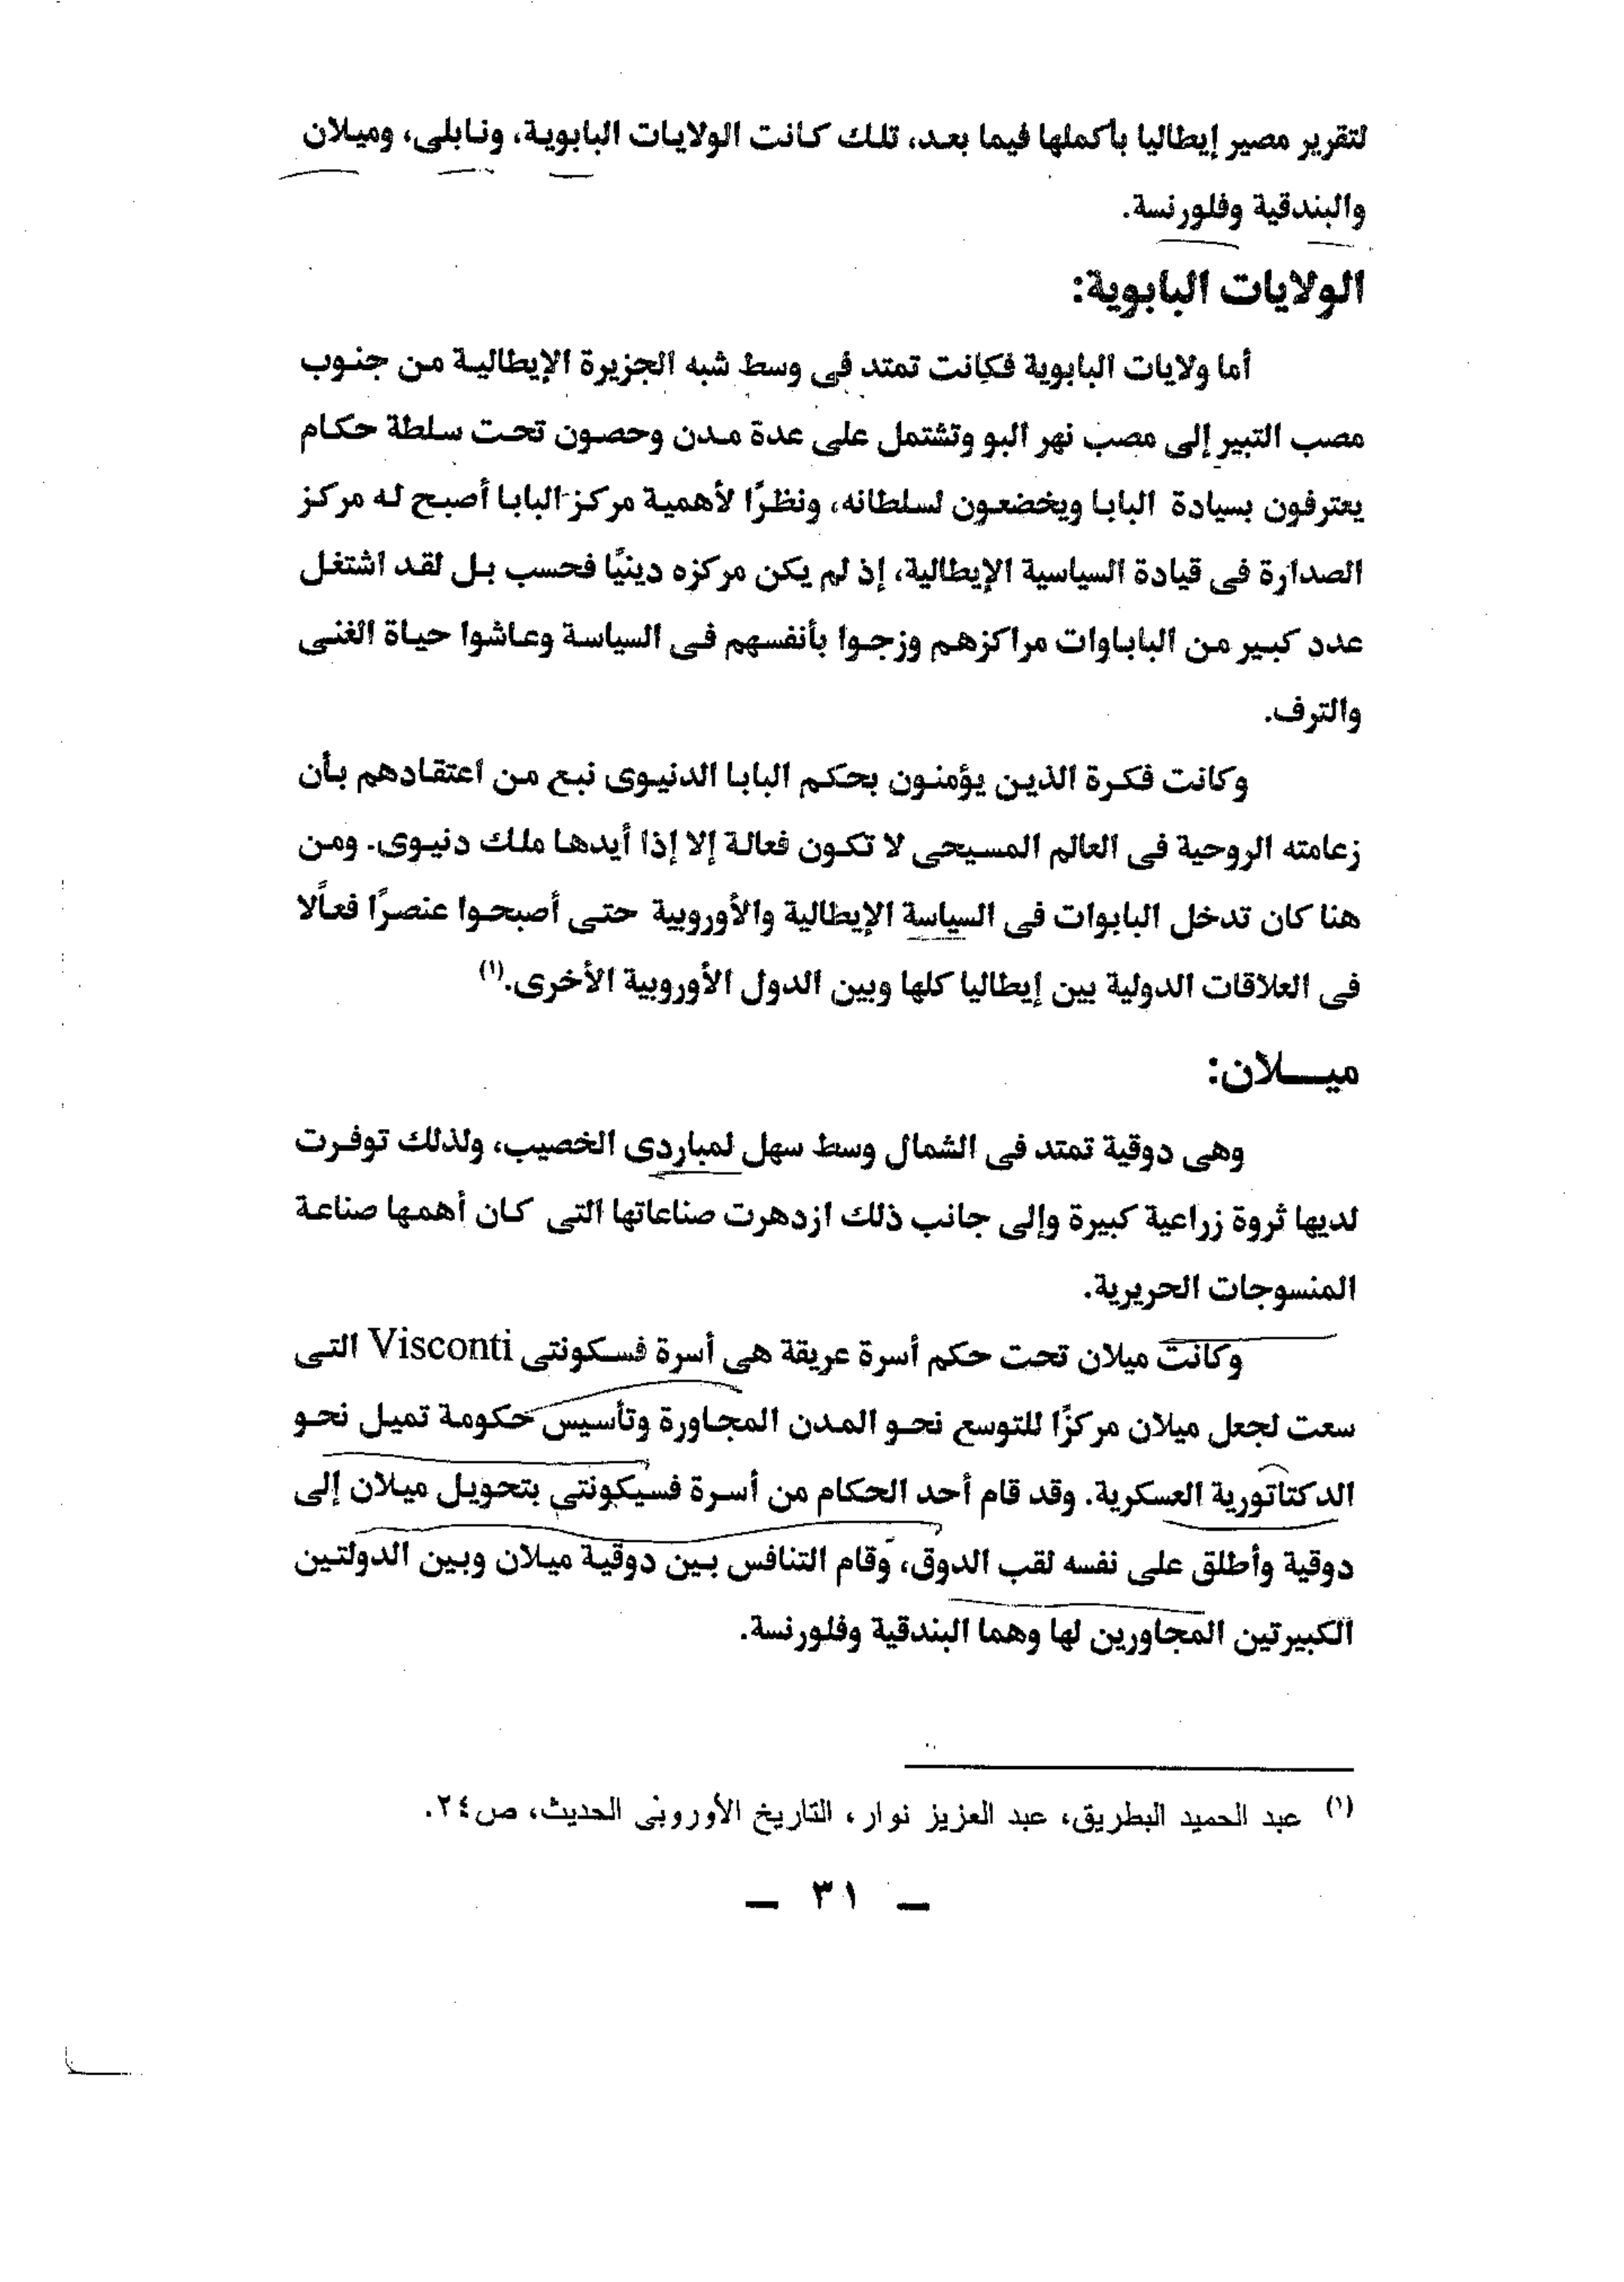 لتقرير مصير إيطاليا بأكملها فيما بعد، تلك كانت الولايات البابوية، ونابلى، وميلان
والبندقية وفلورنسة.
الولايات البابوية:
أما ولايات البابوية فكانت تمتد فى وسط شبه الجزيرة الإيطالية من جنوب
مصب التيبر إلى مصب نهر البو وتشتمل على عدة مدن وحصون تحت سلطة حكام
يعترفون بسيادة البابا ويخضعون لسلطانه، ونظرًا لأهمية مركز البابا أصبح له مركز
الصدارة فى قيادة السياسية الإيطالية، إذ لم يكن مركزه دينيًا فحسب بل لقد اشتغل
عدد كبير من الباباوات مراكزهم وزجوا بأنفسهم فى السياسة وعاشوا حياة الغنى
والترف.
وكانت فكرة الذين يؤمنون بحكم البابا الدنيوى نبع من اعتقادهم بأن
زعامته الروحية فى العالم المسيحى لا تكون فعالة إلا إذا أيدها ملك دنيوى. ومن
هنا كان تدخل البابوات فى السياسة الإيطالية والأوروبية حتى أصبحوا عنصرًا فعاًلا
فى العلاقات الدولية بين إيطاليا كلها وبين الدول الأوروبية الأخرى.(١)
ميـــلان:
وهى دوقية تمتد فى الشمال وسط سهل لمباردى الخصيب، ولذلك توفرت
لديها ثروة زراعية كبيرة وإلى جانب ذلك ازدهرت صناعاتها التى كان أهمها صناعة
المنسوجات الحريرية.
وكانت ميلان تحت حكم أسرة عريقة هى أسرة فسكونتى Visconti التى
سعت لجعل ميلان مركزًا للتوسع نحو المدن المجاورة وتأسيس حكومة تميل نحو
الدكتاتورية العسكرية. وقد قام أحد الحكام من أسرة فسيكونتى بتحويل ميلان إلى
دوقية وأطلق على نفسه لقب الدوق، وقام التنافس بين دوقية ميلان وبين الدولتين
الكبيرتين المجاورين لها وهما البندقية وفلورنسة.
(١) عبد الحميد البطريق، عبد العزيز نوار، التاريخ الأوروبى الحديث، ص٢٤.
– ٣١ –